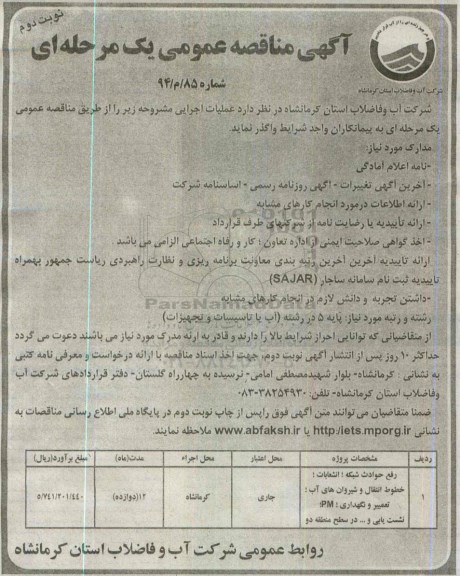 نوبت دوم
آگهی مناقصه عمومی یک مرحله‌ای
شرکت آب وفاضلاب استان کرمانشاه
شماره ۹۴/م/۸۵
شرکت آب وفاضلاب استان کرمانشاه در نظر دارد عملیات اجرایی مشروحه زیر را از طریق مناقصه عمومی
یک مرحله ای به پیمانکاران واجد شرایط واگذار نماید
مدارک مورد نیاز:
-نامه اعلام آمادگی
- آخرین آگهی تغییرات - آگهی روزنامه رسمی - اساسنامه شرکت
- ارائه اطلاعات درمورد انجام کارهای مشابه
- ارائه تأییدیه یا رضایت نامه از شرکتهای طرف قرارداد
- اخذ گواهی صلاحیت ایمنی از اداره تعاون ؛ کار و رفاه اجتماعی الزامی می باشد
ارائه تأییدیه آخرین آخرین رتبه بندی معاونت برنامه ریزی و نظارت راهبردی ریاست جمهور بهمراه
تأییدیه ثبت نام سامانه ساجار (SAJAR)
-داشتن تجربه و دانش لازم در انجام کارهای مشابه
ParsNamadData
رشته و رتبه مورد نیاز: پایه ۵ در رشته (آب یا تاسیسات و تجهیزات)
از متقاضیانی که توانایی احراز شرایط بالا را دارند و قادر به ارئه مدرک مورد نیاز می باشند دعوت می گردد
حداکثر ۱۰ روز پس از انتشار آگهی نوبت دوم جهت اخذ اسناد مناقصه با ارائه درخواست و معرفی نامه کتبی
به نشانی : کرمانشاه- بلوار شهیدمصطفی امامی- نرسیده به چهارراه گلستان- دفتر قراردادهای شرکت آب
وفاضلاب استان کرمانشاه- تلفن: ۳۸۲۵۴۹۳۰-۰۸۳
ضمنا متقاضیان می توانند متن آگهی فوق راپس از چاپ نوبت دوم در پایگاه ملی اطلاع رسانی مناقصات به
نشانی http://iets.mporg.ir یا www.abfaksh.ir ملاحظه نمایند.
ردیف مشخصات پروژه محل اعتبار محل اجراء مدت(ماه) مبلغ برآورد(ریال)
۱ رفع حوادث شبکه ؛ انشعابات ؛ جاری کرمانشاه ۱۲(دوازده) ۵/۷۴۱/۲۰۱/۴۴۰
خطوط انتقال و شیروان های آب ؛
تعمییر و نگهداری ؛ PM؛
نشت یابی و ... در سطح منطقه دو
روابط عمومی شرکت آب و فاضلاب استان کرمانشاه